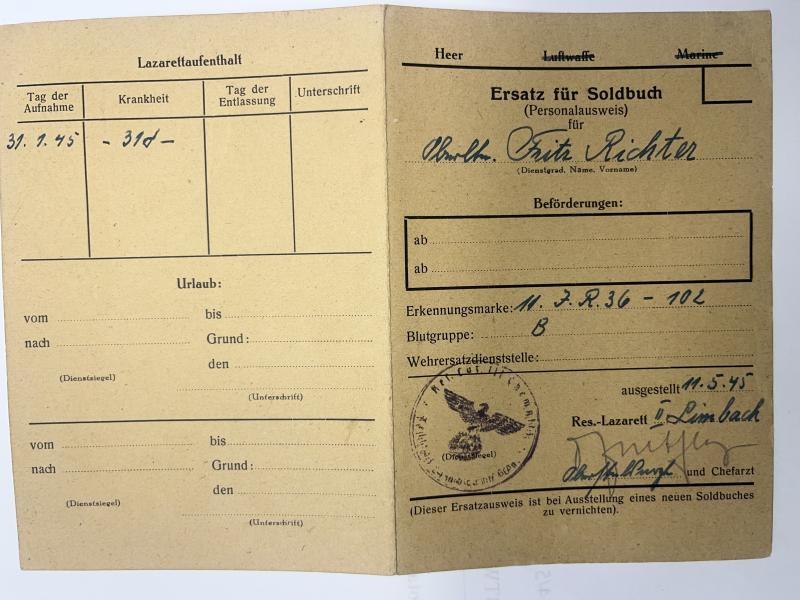 Lazarettaufenthalt
Tag der Aufnahme Krankheit Tag der Entlassung Unterschrift
31. 1. 45 - 31d -
Urlaub:
vom bis
nach Grund:
den
(Dienstsiegel)
(Unterschrift)
vom bis
nach Grund:
den
(Dienstsiegel)
(Unterschrift)
Heer Luftwaffe Marine
Ersatz für Soldbuch
(Personalausweis)
für
Oberltn. Fritz Richter
(Dienstgrad, Name, Vorname)
Beförderungen:
ab
ab
Erkennungsmarke: 11. J. R. 36 - 102
Blutgruppe: B
Wehrersatzdienststelle:
ausgestellt 11.5.45
Res.-Lazarett II Limbach
(Dienstsiegel)
und Chefarzt
(Dieser Ersatzausweis ist bei Ausstellung eines neuen Soldbuches
zu vernichten).